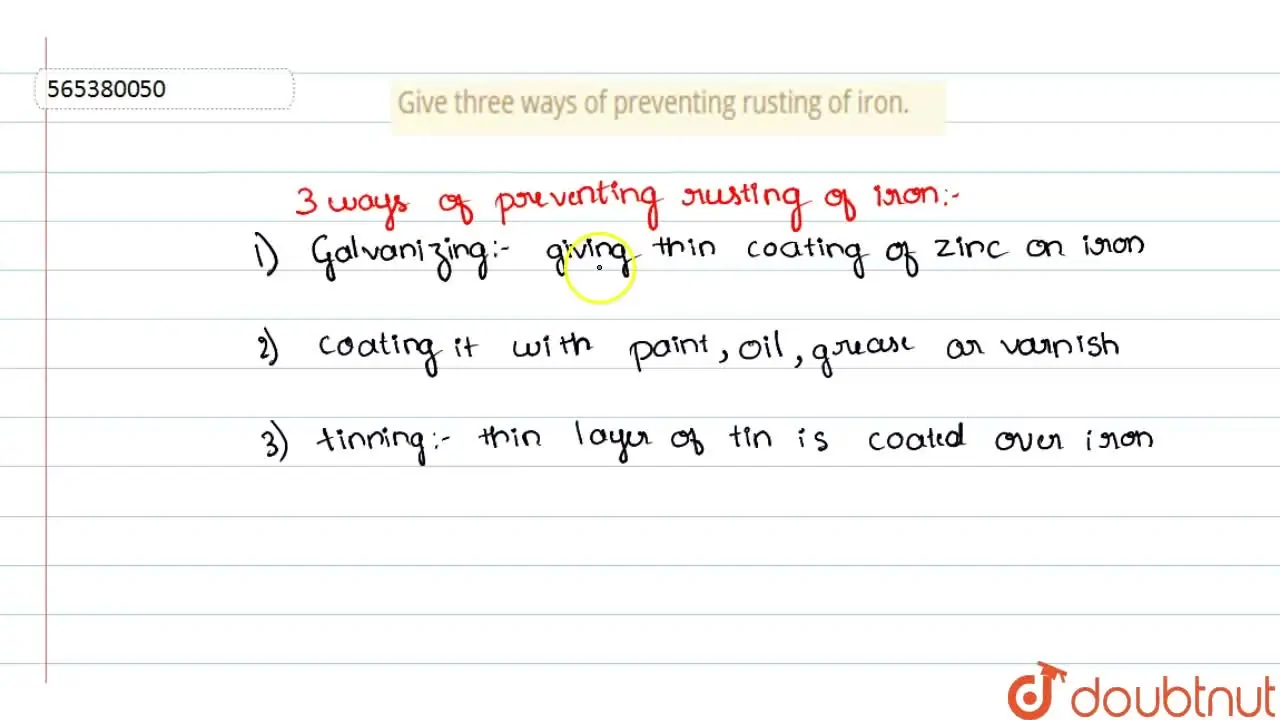 565380050
Give three ways of preventing rusting of iron.
3 ways of preventing rusting of iron:-
1) Galvanizing:- giving thin coating of zinc on iron
2) coating it with paint, oil, grease or varnish
3) tinning:- thin layer of tin is coated over iron
doubtnut